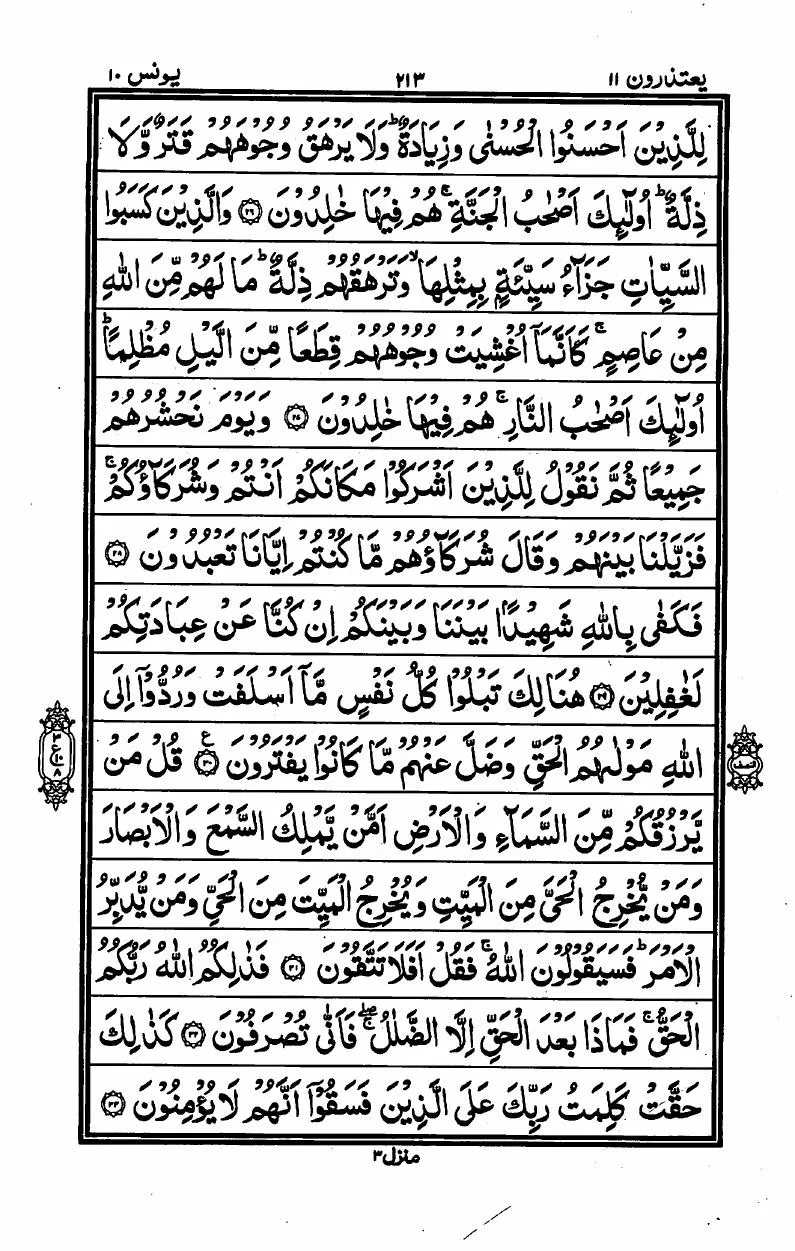 یعتذرون ۱۱ ۲۱۳ یونس ۱۰
لِلَّذِيْنَ اَحْسَنُوا الْحُسْنٰى وَزِيَادَةٌ ؕ وَلَا يَرْهَقُ وُجُوْهَهُمْ قَتَرٌ وَّلَا
ذِلَّةٌ ؕ اُولٰٓئِكَ اَصْحٰبُ الْجَنَّةِ ۚ هُمْ فِيْهَا خٰلِدُوْنَ ﴿۲۶﴾ وَالَّذِيْنَ كَسَبُوا
السَّيِّاٰتِ جَزَآءُ سَيِّئَةٍۭ بِمِثْلِهَا ۙ وَتَرْهَقُهُمْ ذِلَّةٌ ؕ مَا لَهُمْ مِّنَ اللّٰهِ
مِنْ عَاصِمٍ ۚ كَاَنَّمَاۤ اُغْشِيَتْ وُجُوْهُهُمْ قِطَعًا مِّنَ الَّيْلِ مُظْلِمًا ؕ
اُولٰٓئِكَ اَصْحٰبُ النَّارِ ۚ هُمْ فِيْهَا خٰلِدُوْنَ ﴿۲۷﴾ وَيَوْمَ نَحْشُرُهُمْ
جَمِيْعًا ثُمَّ نَقُوْلُ لِلَّذِيْنَ اَشْرَكُوْا مَكَانَكُمْ اَنْتُمْ وَشُرَكَآؤُكُمْ ۚ
فَزَيَّلْنَا بَيْنَهُمْ وَقَالَ شُرَكَآؤُهُمْ مَّا كُنْتُمْ اِيَّانَا تَعْبُدُوْنَ ﴿۲۸﴾
فَكَفٰى بِاللّٰهِ شَهِيْدًۢا بَيْنَنَا وَبَيْنَكُمْ اِنْ كُنَّا عَنْ عِبَادَتِكُمْ
لَغٰفِلِيْنَ ﴿۲۹﴾ هُنَالِكَ تَبْلُوْا كُلُّ نَفْسٍ مَّاۤ اَسْلَفَتْ وَرُدُّوْۤا اِلَى
اللّٰهِ مَوْلٰىهُمُ الْحَقِّ وَضَلَّ عَنْهُمْ مَّا كَانُوْا يَفْتَرُوْنَ ﴿۳۰﴾ ع قُلْ مَنْ
يَّرْزُقُكُمْ مِّنَ السَّمَآءِ وَالْاَرْضِ اَمَّنْ يَّمْلِكُ السَّمْعَ وَالْاَبْصَارَ
وَمَنْ يُّخْرِجُ الْحَيَّ مِنَ الْمَيِّتِ وَيُخْرِجُ الْمَيِّتَ مِنَ الْحَيِّ وَمَنْ يُّدَبِّرُ
الْاَمْرَ ؕ فَسَيَقُوْلُوْنَ اللّٰهُ ۚ فَقُلْ اَفَلَا تَتَّقُوْنَ ﴿۳۱﴾ فَذٰلِكُمُ اللّٰهُ رَبُّكُمُ
الْحَقُّ ۚ فَمَاذَا بَعْدَ الْحَقِّ اِلَّا الضَّلٰلُ ۖۚ فَاَنّٰى تُصْرَفُوْنَ ﴿۳۲﴾ كَذٰلِكَ
حَقَّتْ كَلِمَتُ رَبِّكَ عَلَى الَّذِيْنَ فَسَقُوْۤا اَنَّهُمْ لَا يُؤْمِنُوْنَ ﴿۳۳﴾
النصف
۳
ع
۱۰
۸
منزل۳